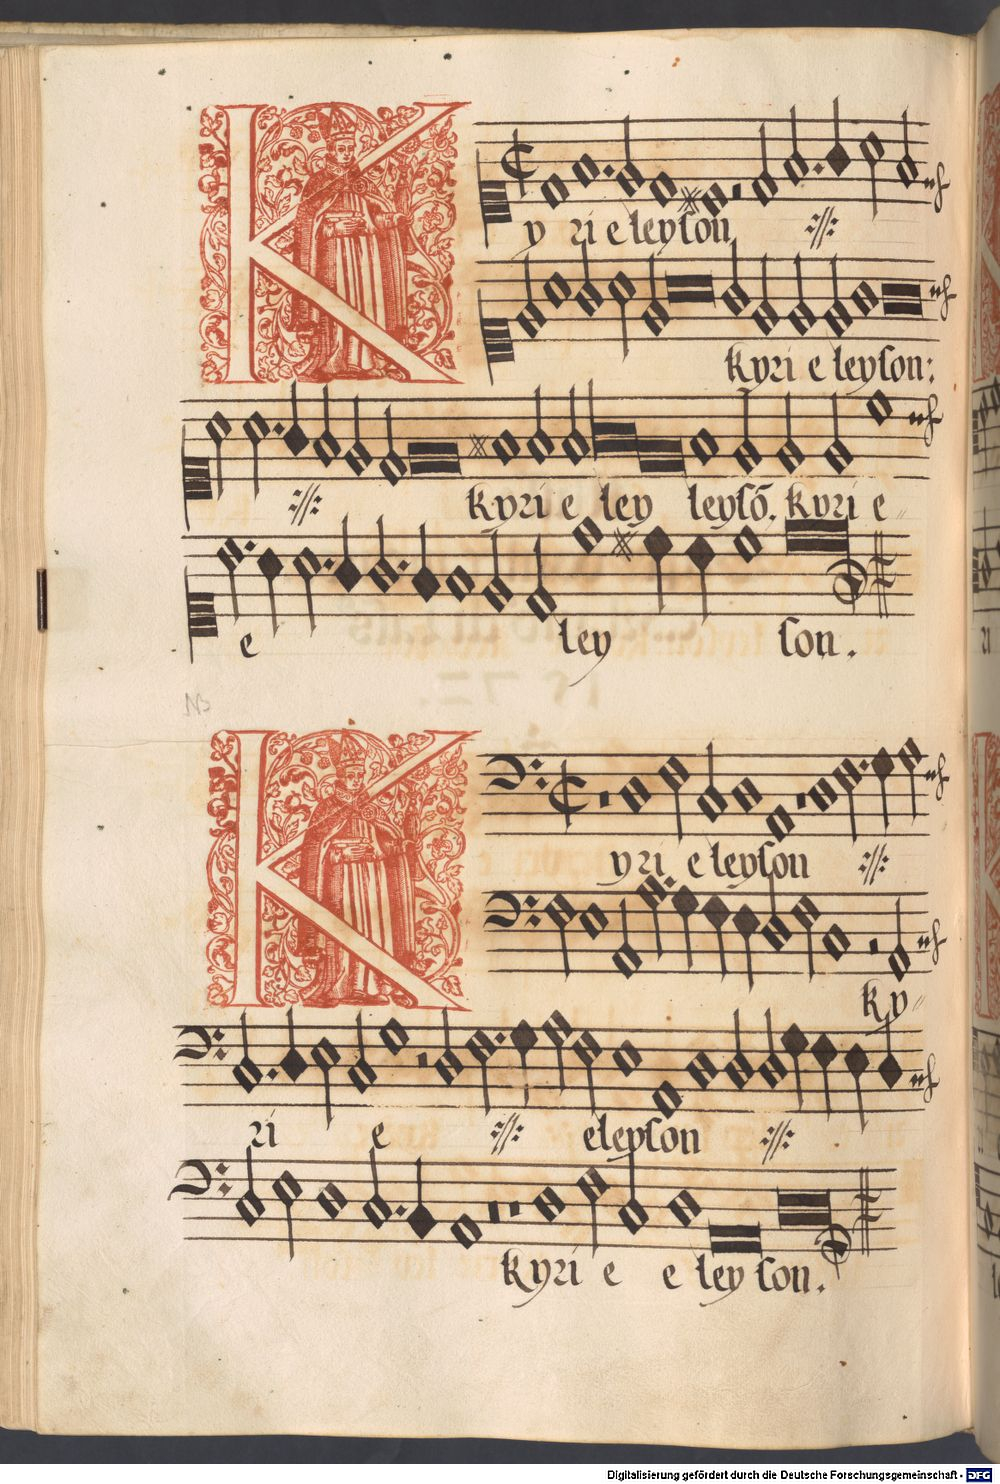 K
yri eleyson
kyri e leyson:
kyri e ley leysõ. kyri e
e ley son.
NB
K
yri e leyson
ky
ri e eleyson
kyri e e ley son.
Digitalisierung gefördert durch die Deutsche Forschungsgemeinschaft - DFG